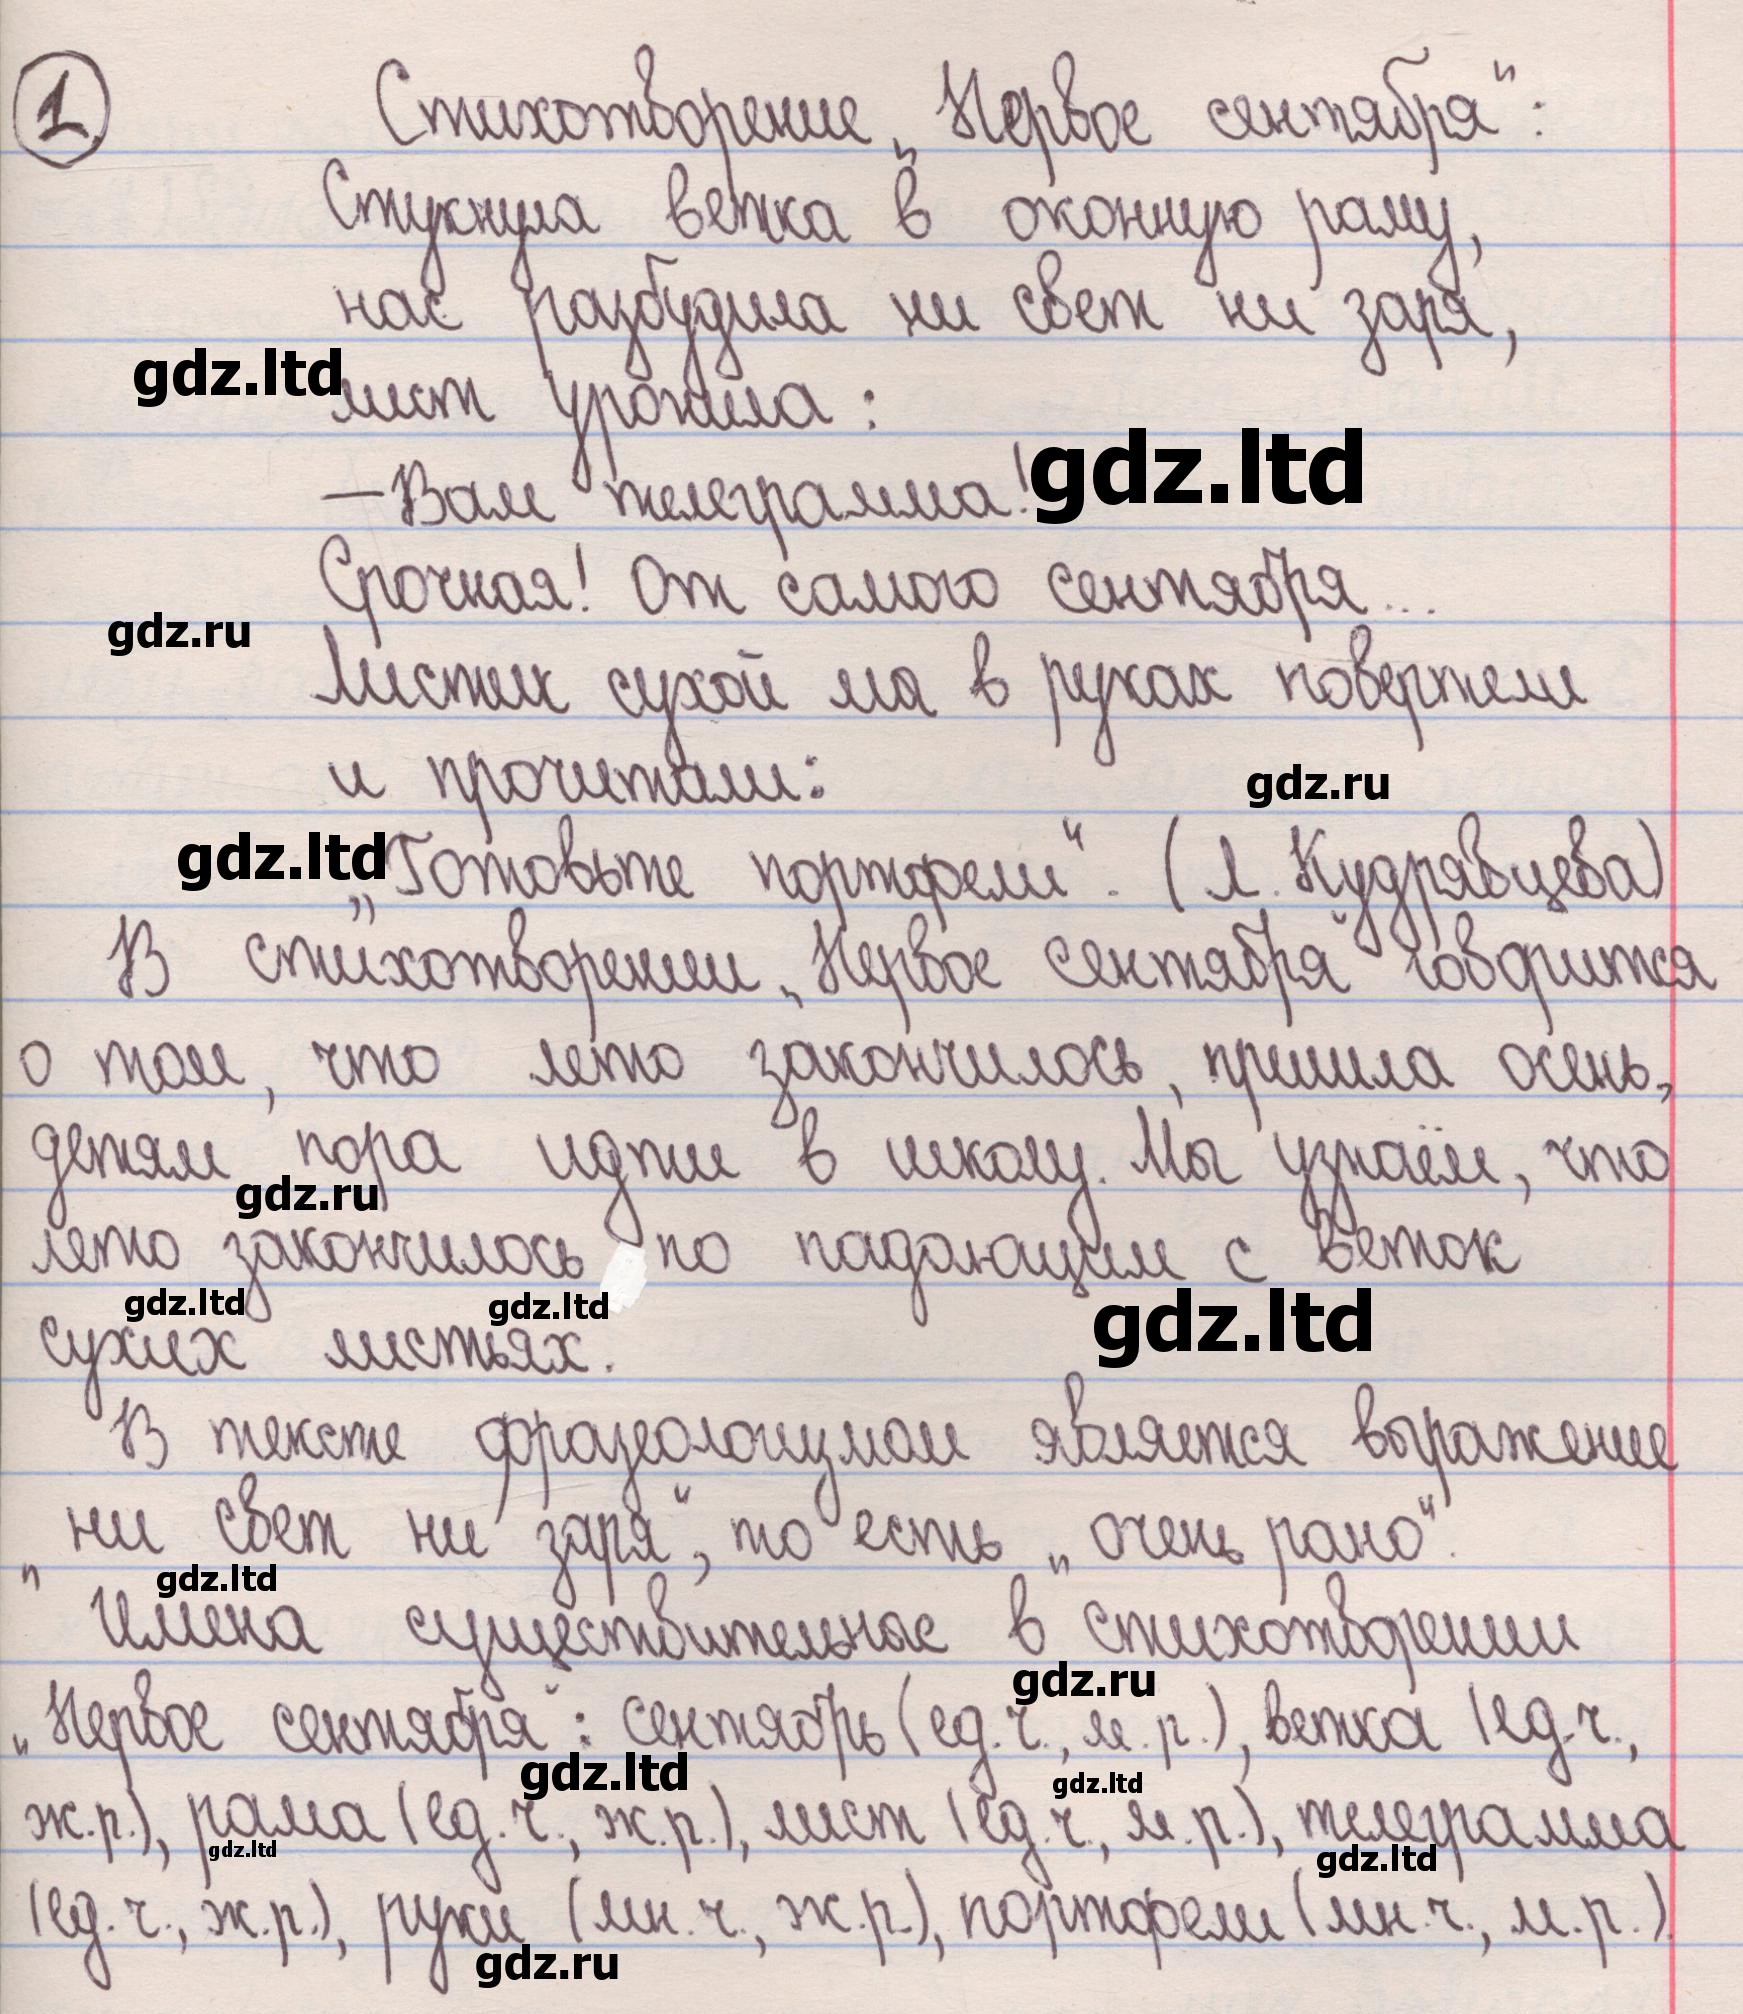 1. Стихотворение „Первое сентября":
Стукнула ветка в оконную раму,
нас разбудила ни свет ни заря,
gdz.ltd
лист уронила:
gdz.ltd
— Вам телеграмма!
Срочная! От самого сентября...
gdz.ru
Листик сухой мы в руках повертели
и прочитали:
gdz.ru
gdz.ltd
„Готовьте портфели". (Л. Кудрявцева)
В стихотворении „Первое сентября" говорится
о том, что лето закончилось, пришла осень,
детям пора идти в школу. Мы узнаём, что
gdz.ru
лето закончилось по падающим с веток
gdz.ltd gdz.ltd gdz.ltd
сухих листьях.
В тексте фразеологизмом является выражение
„ни свет ни заря", то есть „очень рано".
gdz.ltd
Имена существительные в стихотворении
gdz.ru
„Первое сентября": сентябрь (ед.ч., м.р.), ветка (ед.ч.,
gdz.ltd gdz.ltd
ж.р.), рама (ед.ч., ж.р.), лист (ед.ч., м.р.), телеграмма
gdz.ltd gdz.ltd
(ед.ч., ж.р.), руки (мн.ч., ж.р.), портфели (мн.ч., м.р.).
gdz.ru